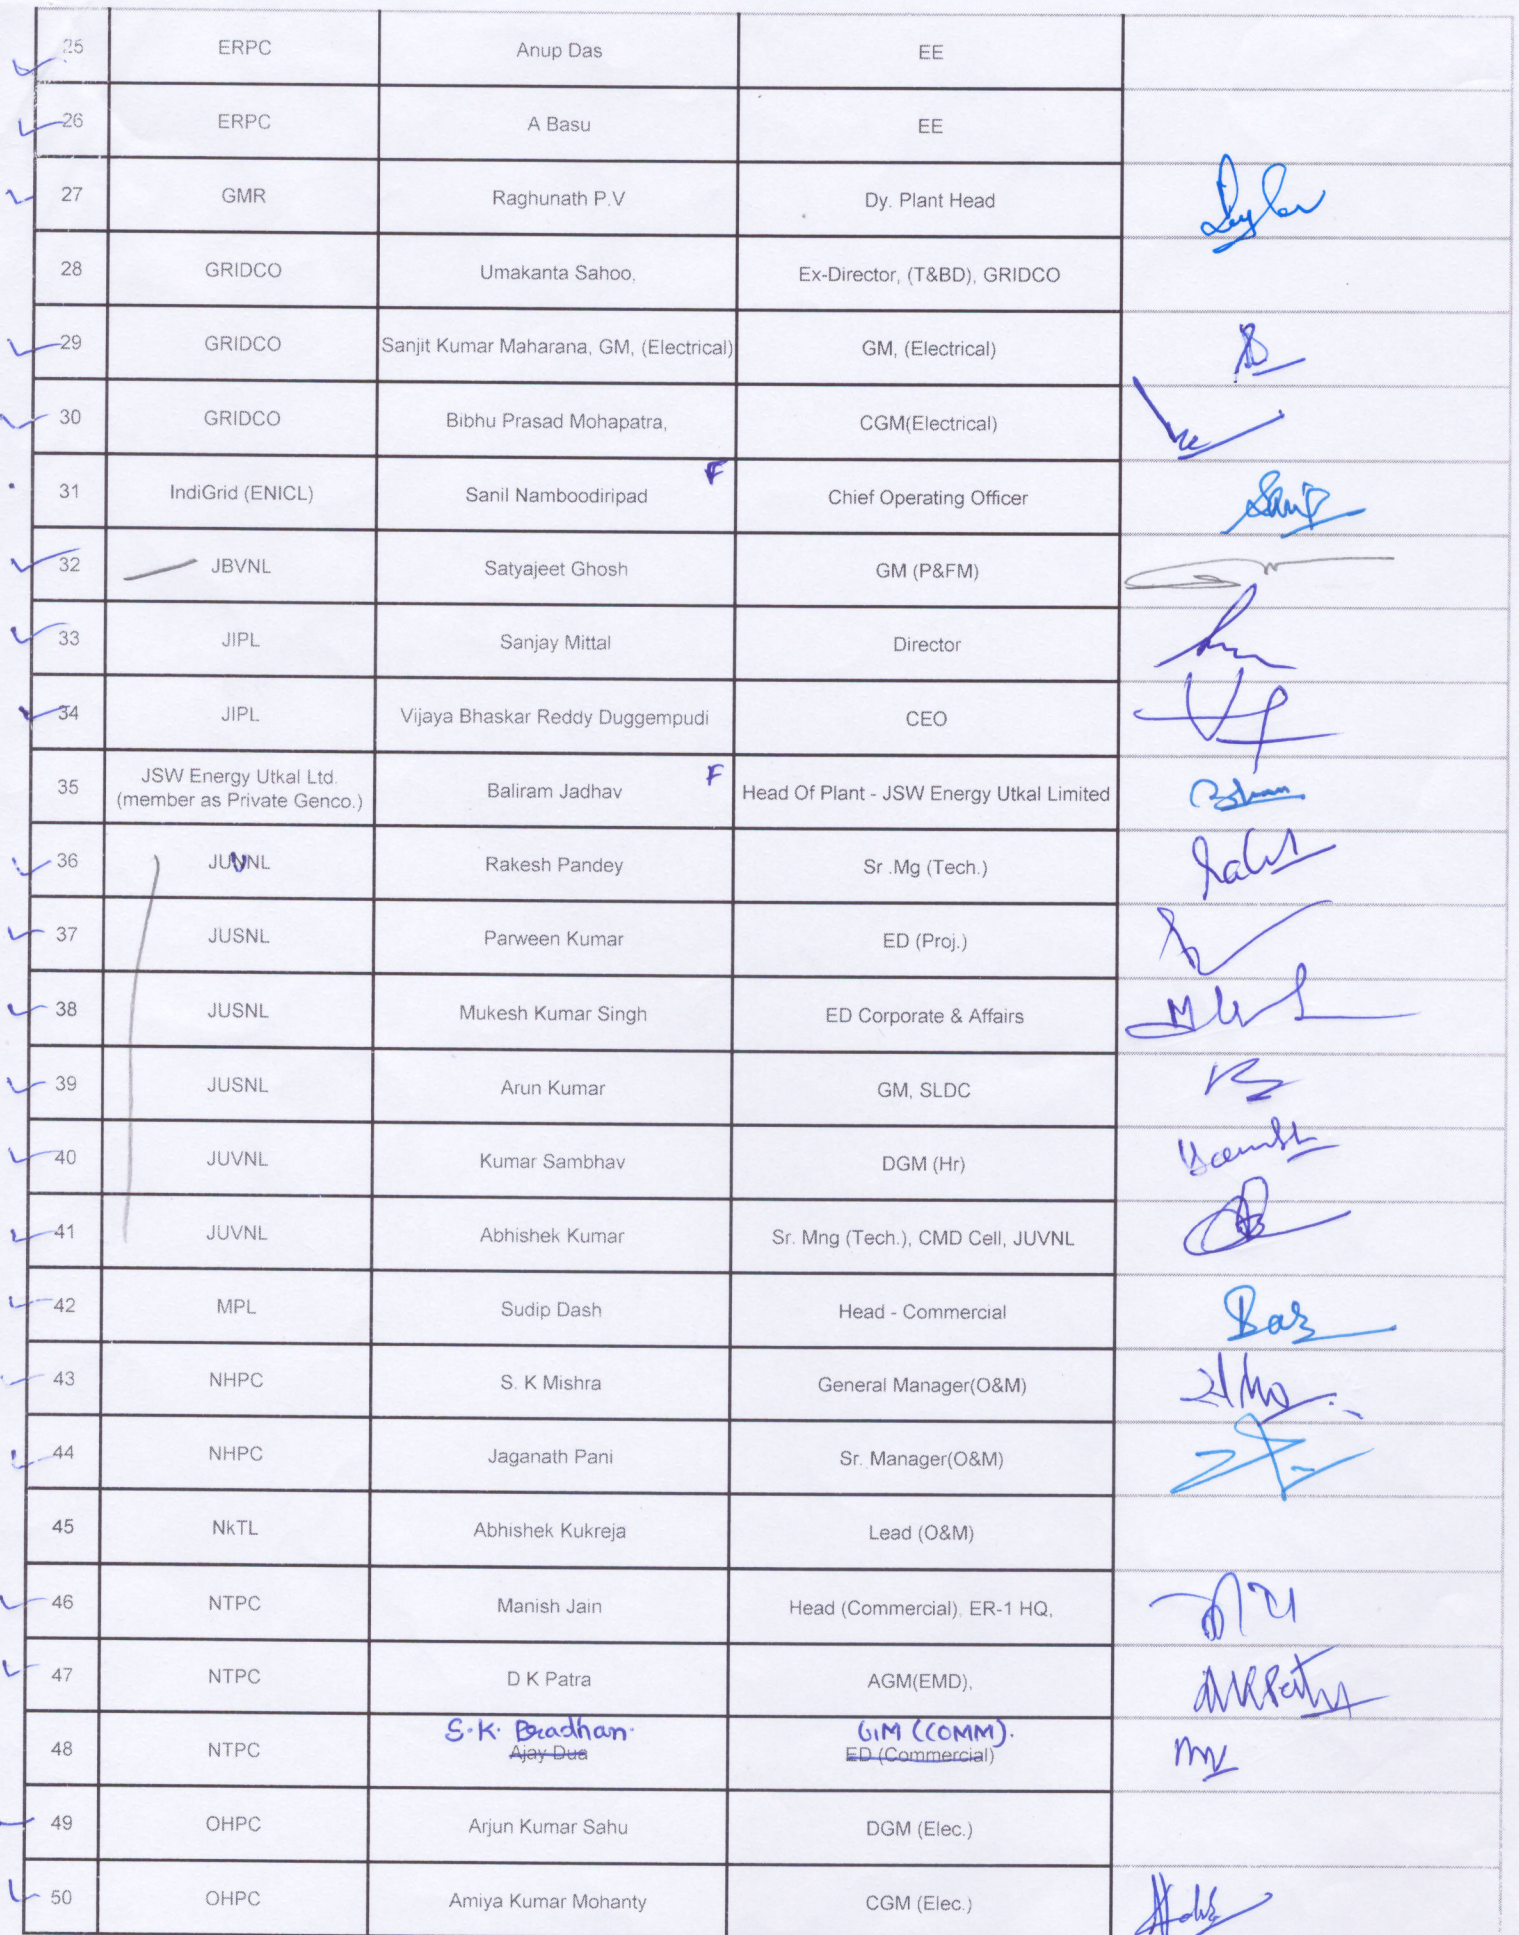 25 ERPC Anup Das EE
26 ERPC A Basu EE
27 GMR Raghunath P.V Dy. Plant Head
28 GRIDCO Umakanta Sahoo, Ex-Director, (T&BD), GRIDCO
29 GRIDCO Sanjit Kumar Maharana, GM, (Electrical) GM, (Electrical)
30 GRIDCO Bibhu Prasad Mohapatra, CGM(Electrical)
F
31 IndiGrid (ENICL) Sanil Namboodiripad Chief Operating Officer
32 JBVNL Satyajeet Ghosh GM (P&FM)
33 JIPL Sanjay Mittal Director
34 JIPL Vijaya Bhaskar Reddy Duggempudi CEO
JSW Energy Utkal Ltd. F
35 (member as Private Genco.) Baliram Jadhav Head Of Plant - JSW Energy Utkal Limited
36 JUVNL Rakesh Pandey Sr .Mg (Tech.)
37 JUSNL Parween Kumar ED (Proj.)
38 JUSNL Mukesh Kumar Singh ED Corporate & Affairs
39 JUSNL Arun Kumar GM, SLDC
40 JUVNL Kumar Sambhav DGM (Hr)
41 JUVNL Abhishek Kumar Sr. Mng (Tech.), CMD Cell, JUVNL
42 MPL Sudip Dash Head - Commercial
43 NHPC S. K Mishra General Manager(O&M)
44 NHPC Jaganath Pani Sr. Manager(O&M)
45 NkTL Abhishek Kukreja Lead (O&M)
46 NTPC Manish Jain Head (Commercial), ER-1 HQ,
47 NTPC D K Patra AGM(EMD),
S.K. Pradhan. GM (COMM).
48 NTPC Ajay Dua ED (Commercial)
49 OHPC Arjun Kumar Sahu DGM (Elec.)
50 OHPC Amiya Kumar Mohanty CGM (Elec.)